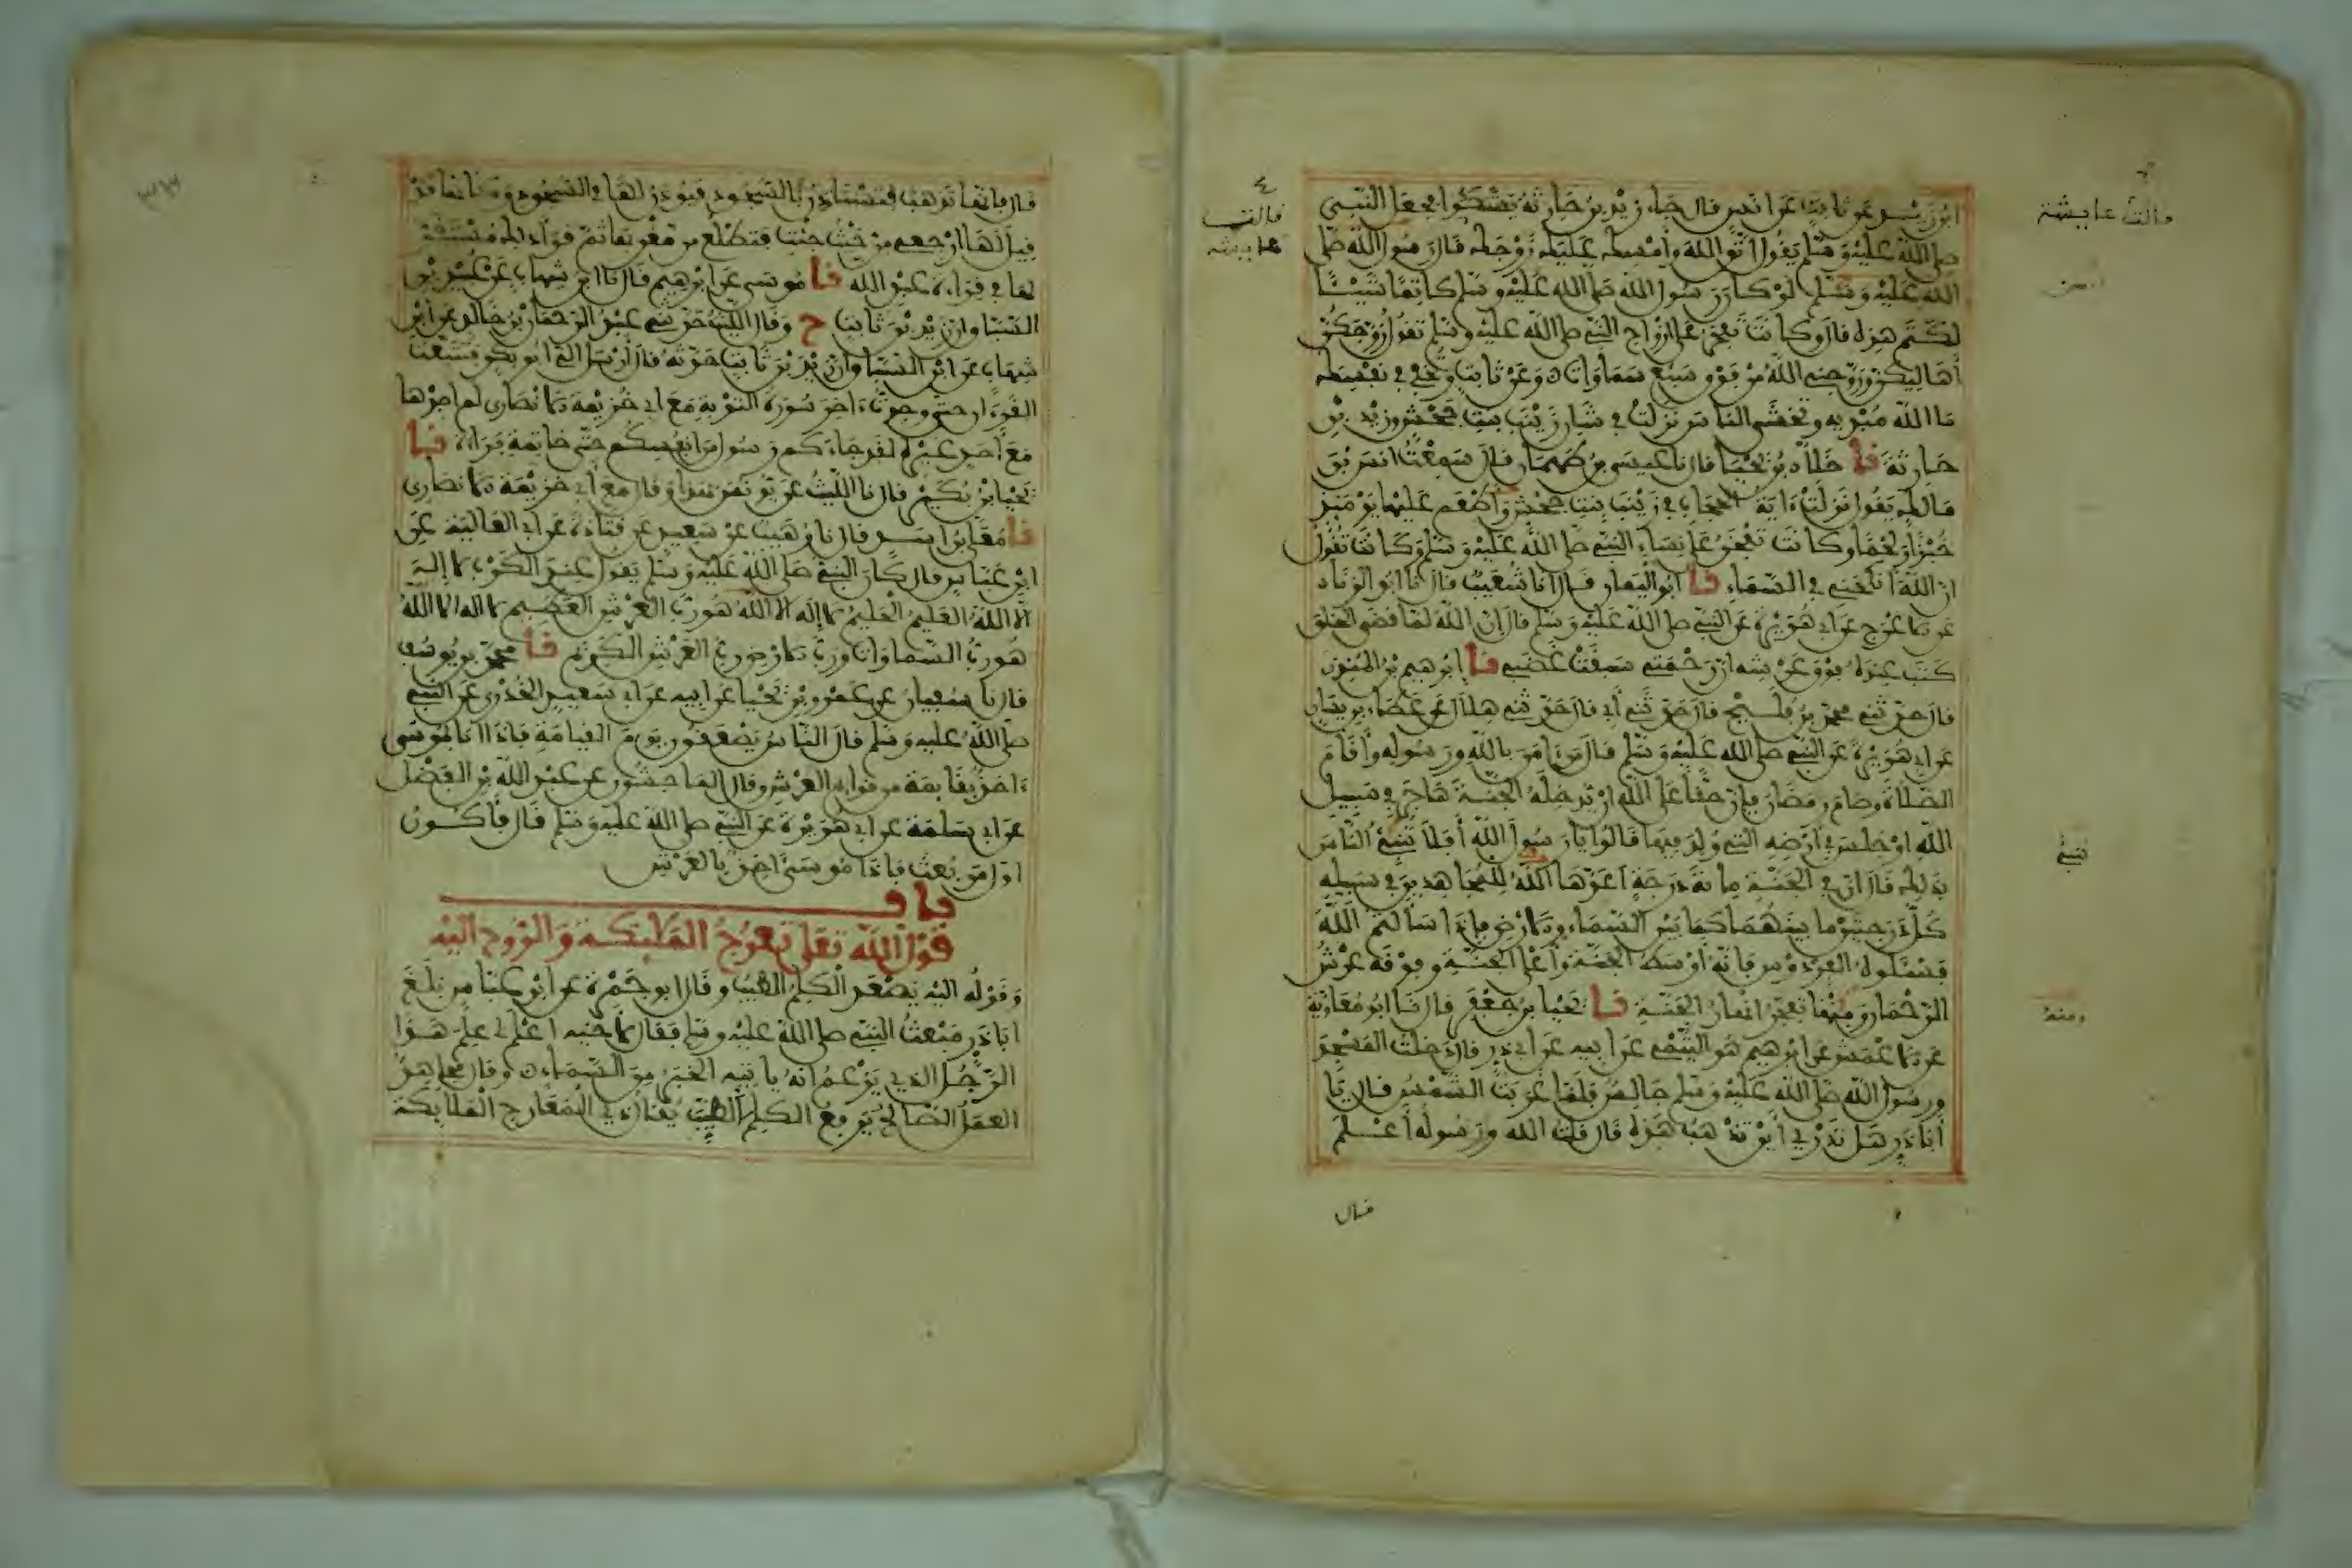 ابن زيد عن ثابت عن انس قال جاء زيد بن حارثة يشكوا فجعل النبي
صلى الله عليه وسلم يقول اتق الله وأمسك عليك زوجك قال رسول الله صلى
الله عليه وسلم لو كان رسول الله صلى الله عليه وسلم كاتما شيئا
لكتم هذه قال وكانت تفخر على ازواج النبي صلى الله عليه وسلم تقول زوجكن
أهاليكن وزوجني الله من فوق سبع سماوات وعن ثابت وتخفي في نفسك
ما الله مبديه وتخشى الناس نزلت في شان زينب بنت جحش وزيد بن
حارثة نا خلاد بن يحيا قال نا عيسى بن طهمان قال سمعت انس بن
مالك يقول نزلت ءاية الحجاب في زينب بنت جحش وأطعم عليها يومئذ
خبزا ولحما وكانت تفخر على نساء النبي صلى الله عليه وسلم وكانت تقول
ان الله أنكحني في السماء نا ابو اليمان قال انا شعيب قال نا ابو الزناد
عن الاعرج عن ابي هريرة عن النبي صلى الله عليه وسلم قال إن الله لما قضى الخلق
كتب عنده فوق عرشه ان رحمتي سبقت غضبي نا ابرهيم بن المنذر
قال حدثني محمد بن فليح قال حدثني أبي قال حدثني هلال عن عطاء بن يسار
عن ابي هريرة عن النبي صلى الله عليه وسلم قال من ءامن بالله ورسوله وأقام
الصلاة وصام رمضان فإن حقا على الله ان يدخله الجنة هاجر في سبيل
الله او جلس في أرضه التي ولد فيها قالوا يا رسول الله أفلا ننبئ الناس
بذلك قال ان في الجنة ماية درجة اعدها الله للمجاهدين في سبيله
كل درجتين ما بينهما كما بين السماء والارض فإذا سألتم الله
فسئلوه الفردوس فإنه أوسط الجنة وأعلى الجنة وفوقه عرش
الرحمن ومنها تفجر انهار الجنة نا يحيا بن جعفر قال نا ابو معاوية
عن الاعمش عن ابرهيم هو التيمي عن ابيه عن ابي ذر قال دخلت المسجد
ورسول الله صلى الله عليه وسلم جالس فلما غربت الشمس قال يا
أبا ذر هل تدري أين تذهب هذه قال قلت الله ورسوله أعلم
قال
قالت عايشة
قالت
عايشة
ننبئ
ومنه
قال فإنها تذهب فتستاذن بالسجود فيوذن لها في السجود وكأنها قد
قيل لها ارجعي من حيث جئت فتطلع من مغربها ثم قرأ ذلك مستقر
لها في قراءة عبد الله نا موسى عن ابرهيم قال نا ابن شهاب عن عبيد بن
السباق ان زيد بن ثابت ح وقال الليث حدثني عبد الرحمن بن خالد عن ابن
شهاب عن ابن السباق ان زيد بن ثابت حدثه قال أرسل الي ابو بكر فتتبعت
القرءان حتى وجدت ءاخر سورة التوبة مع ابي خزيمة الانصاري لم اجدها
مع أحد غيره لقد جاءكم رسول من انفسكم حتى خاتمة براءة نا
يحيا بن بكير قال نا الليث عن يونس بهذا وقال مع أبي خزيمة الانصاري
نا معلى بن اسد قال نا وهيب عن سعيد عن قتادة عن ابي العالية عن
ابن عباس قال كان النبي صلى الله عليه وسلم يقول عند الكرب لا إله
الا الله العليم الحليم لا إله الا الله هو رب العرش العظيم لا اله الا الله
هو رب السماوات ورب الارض ورب العرش الكريم نا محمد بن يوسف
قال نا سفيان عن عمرو بن يحيا عن ابيه عن ابي سعيد الخدري عن النبي
صلى الله عليه وسلم قال الناس يصعقون يوم القيامة فإذا أنا بموسى
ءاخذ بقايمة من قوايم العرش وقال الماجشون عن عبد الله بن الفضل
عن ابي سلمة عن ابي هريرة عن النبي صلى الله عليه وسلم قال فأكون
اول من بعث فإذا موسى اخذ بالعرش
باب
قول الله تعلى تعرج الملئكة والروح اليه
وقوله اليه يصعد الكلم الطيب وقال ابو جمرة عن ابن عباس بلغ
ابا ذر مبعث النبي صلى الله عليه وسلم فقال لأخيه اعلم لي علم هذا
الرجل الذي يزعم انه ياتيه الخبر من السماء وقال مجاهد
العمل الصالح يرفع الكلم الطيب يقال ذي المعارج الملايكة